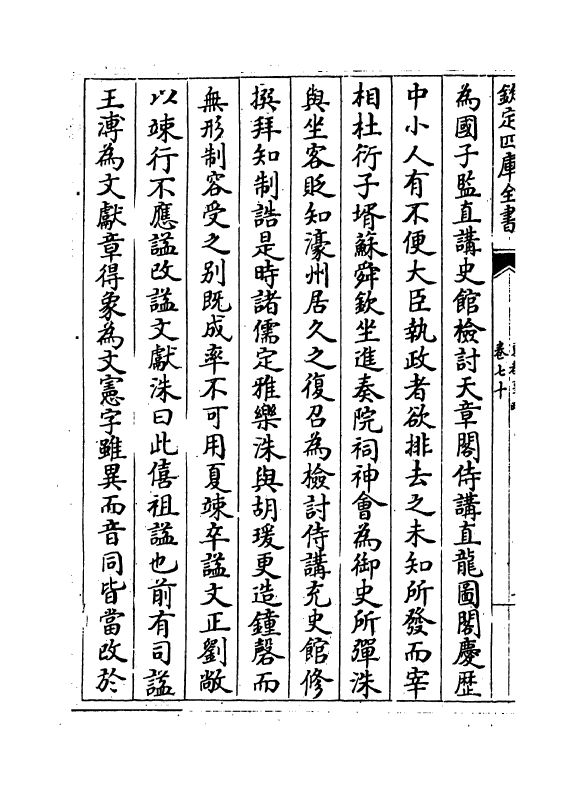 欽定四庫全書
卷七十
為國子監直講史館檢討天章閣侍講直龍圖閣慶歴
中小人有不便大臣執政者欲排去之未知所發而宰
相杜衍子壻蘇舜欽坐進奏院祠神會為御史所彈洙
與坐客貶知濠州居久之復召為檢討侍講充史館修
撰拜知制誥是時諸儒定雅樂洙與胡瑗更造鐘磬而
無形制容受之别既成率不可用夏竦卒諡文正劉敞
以竦行不應諡改諡文獻洙曰此僖祖諡也前有司諡
王溥為文獻章得象為文憲字雖異而音同皆當改於